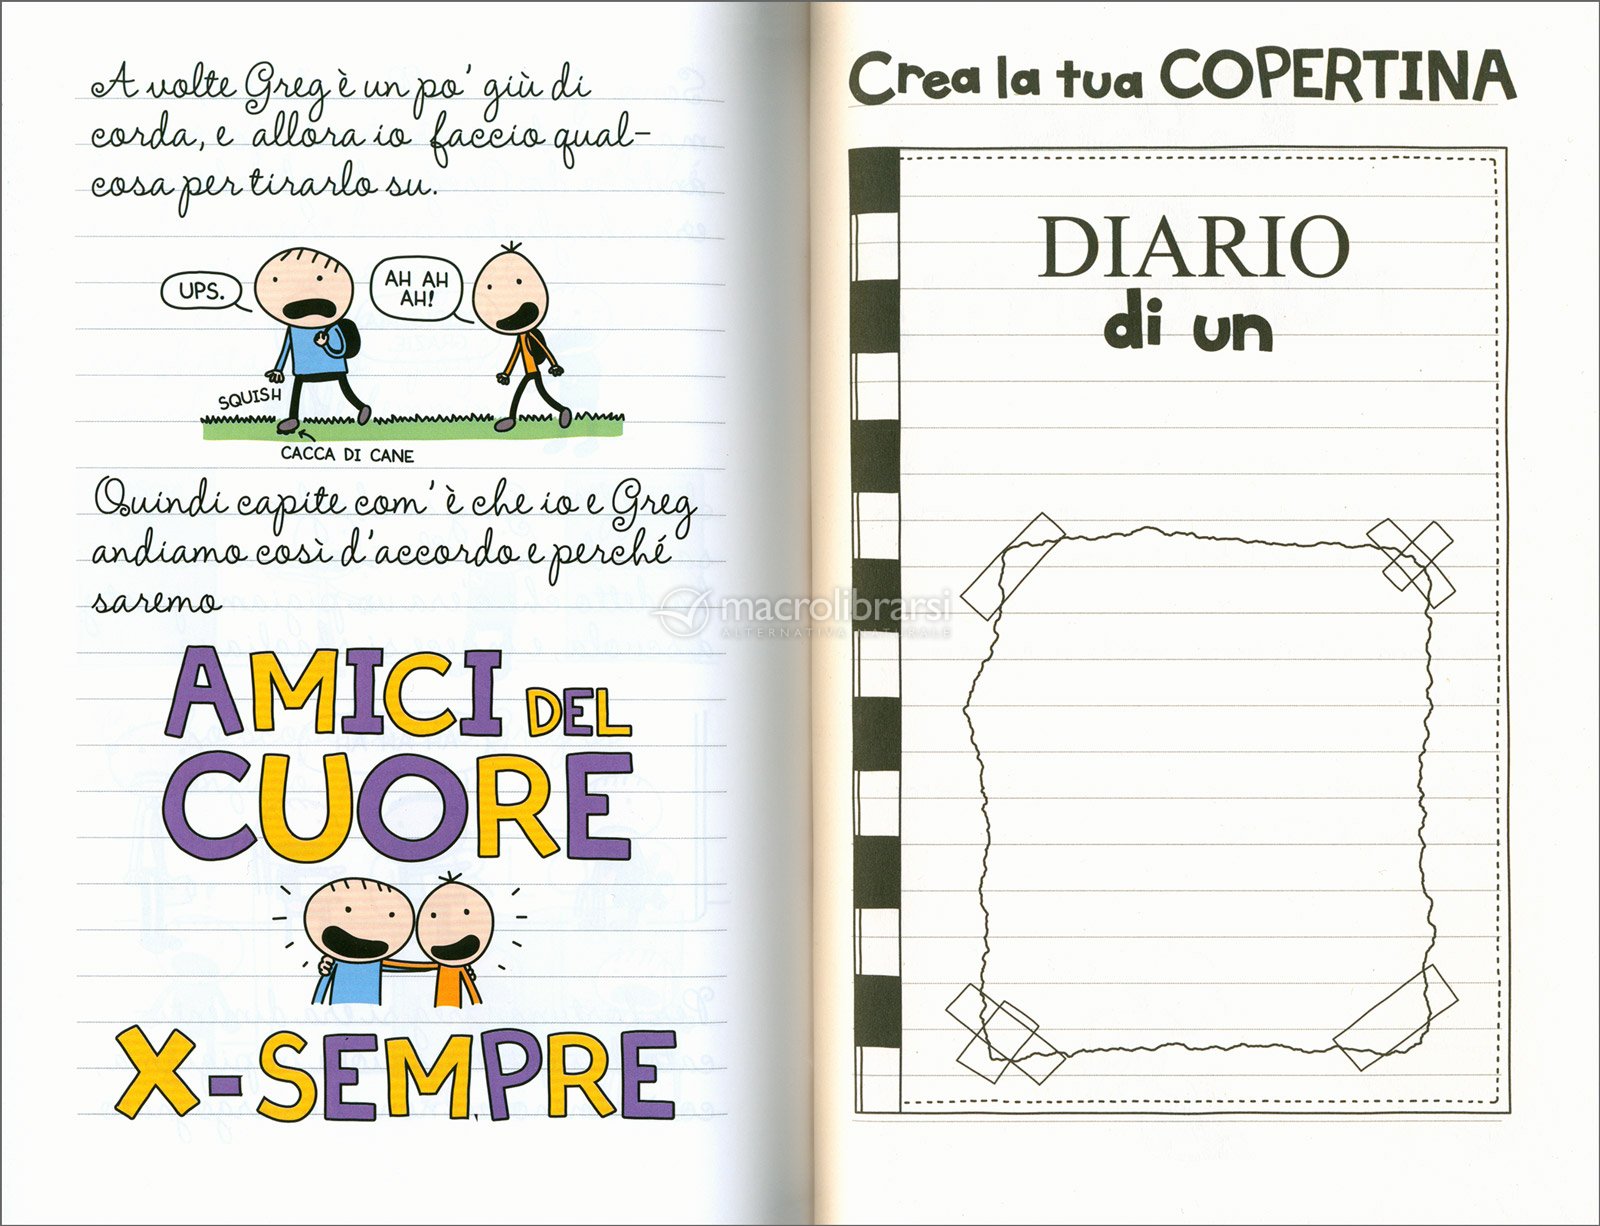 A volte Greg è un po' giù di
corda, e allora io faccio qual-
cosa per tirarlo su.
UPS.
AH AH
AH!
SQUISH
CACCA DI CANE
Quindi capite com'è che io e Greg
andiamo così d'accordo e perché
saremo
AMICI DEL
CUORE
X-SEMPRE
Crea la tua COPERTINA
DIARIO
di un
macrolibrarsi
ALTERNATIVA NATURALE